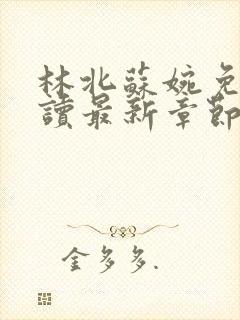 林北蘇婉免
讀最新章節
金多多.